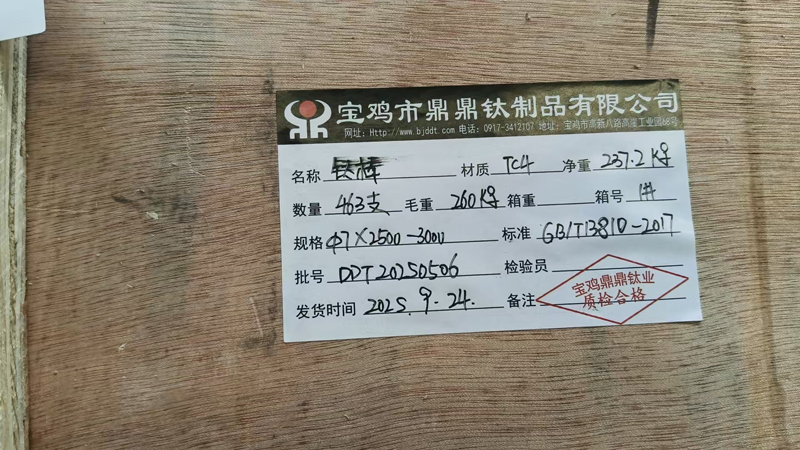 宝鸡市鼎鼎钛制品有限公司
网址:Http://www.bjddt.com 电话:0917-3412107 地址:宝鸡市高新八路高崖工业园68号
名称 钛棒 材质 TC4 净重 237.2 Kg
数量 463支 毛重 260Kg 箱重 箱号 1#
规格 Φ7×2500-3000 标准 GB/T13810-2017
批号 DDT20250506 检验员
发货时间 2025.9.24. 备注
宝鸡鼎鼎钛业
质检合格